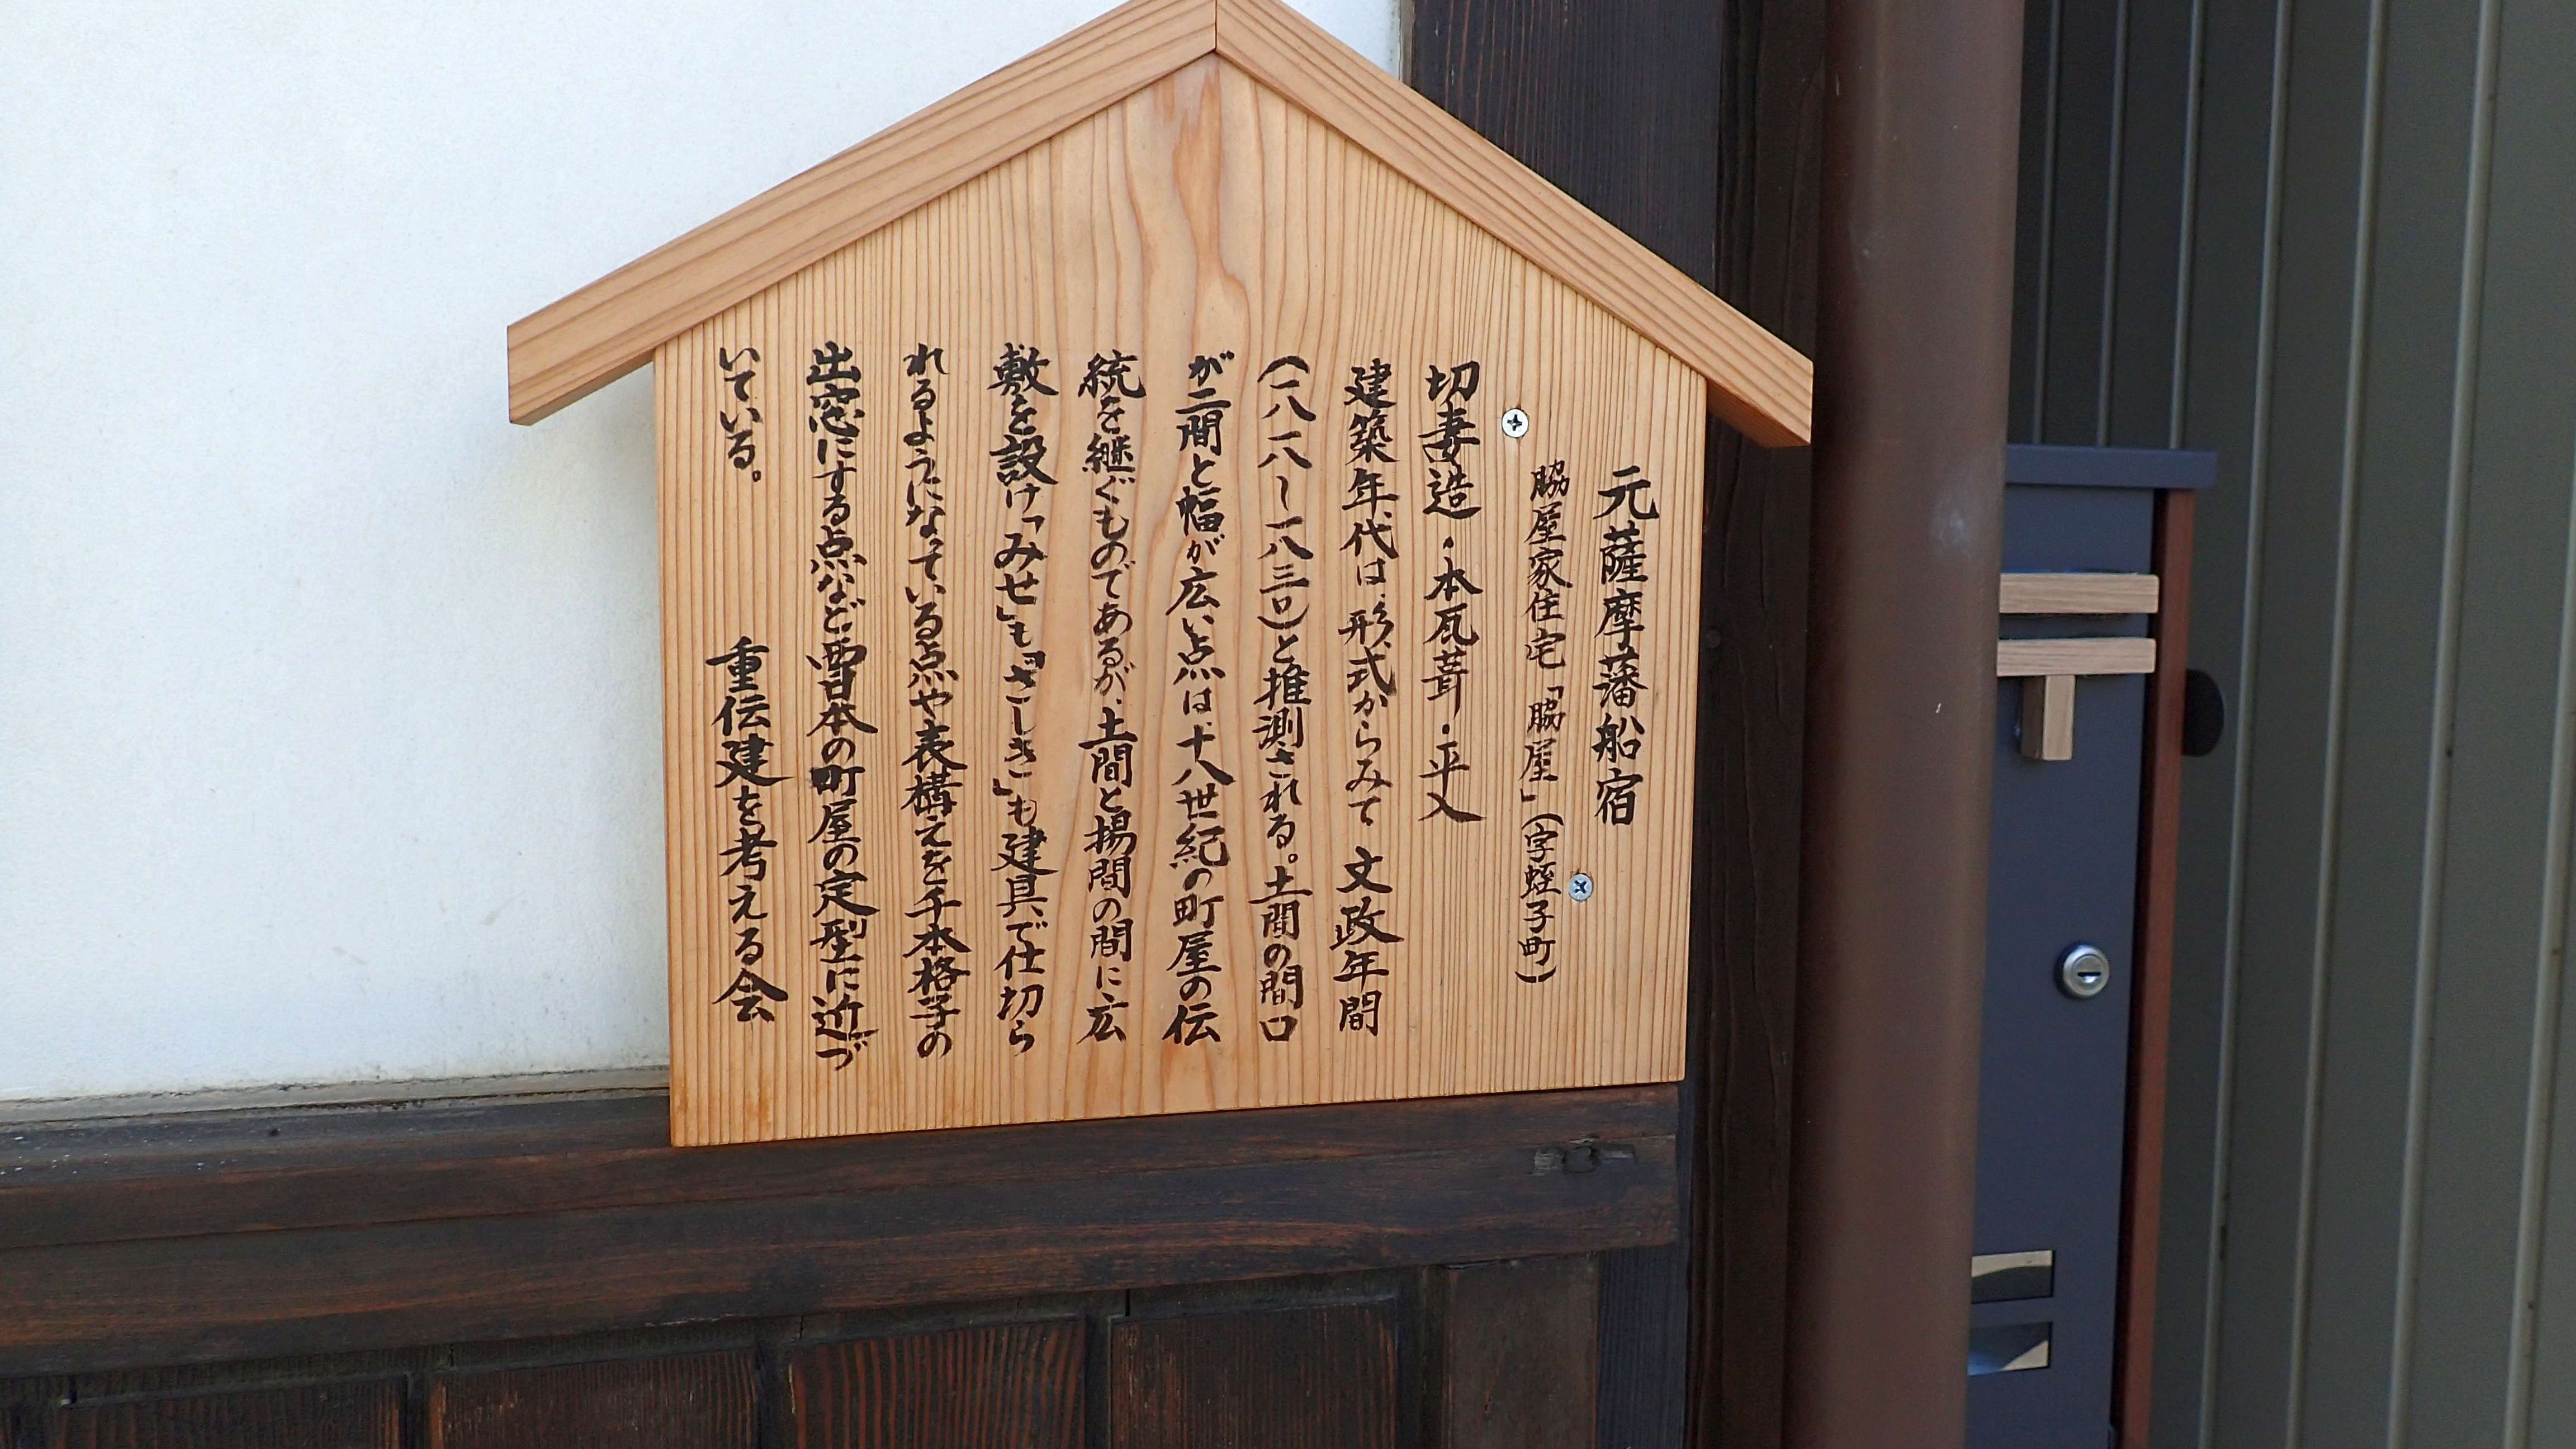 元薩摩藩船宿
脇屋家住宅「脇屋」（字蛭子町）
切妻造・本瓦葺・平入
建築年代は、形式からみて、文政年間
（一八一八〜一八三〇）と推測される。土間の間口
が二間と幅が広い点は、十八世紀の町屋の伝
統を継ぐものであるが、土間と揚間の間に広
敷を設け「みせ」も「ざしき」も建具で仕切ら
れるようになっている点や表構えを千本格子の
出窓にする点など西日本の町屋の定型に近づ
いている。
重伝建を考える会